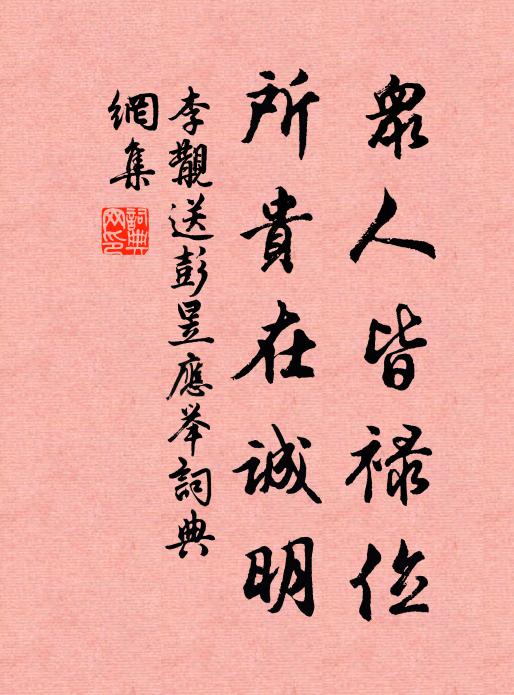 眾人皆祿位
所貴在誠明
李覯送彭昱應举詞典
網集
詞典
网印